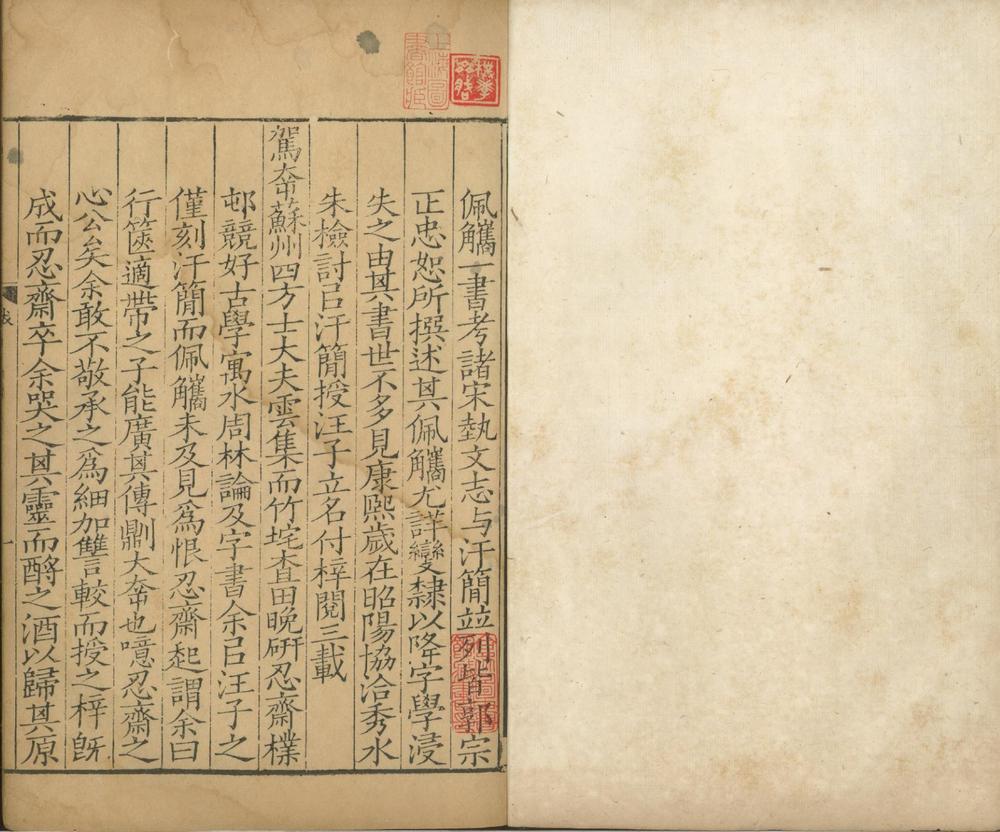 佩觿一書考諸宋埶文志与汗簡竝列皆郭宗
正忠恕所撰述其佩觿尤詳變隸以降字學浸
失之由其書世不多見康熙歲在昭陽協洽秀水
朱檢討㠯汗簡授汪子立名付梓閱三載
駕幸蘇州四方士大夫雲集而竹垞查田晚研忍齋樸
邨競好古學寓水周林論及字書余㠯汪子之
僅刻汗簡而佩觿未及見爲恨忍齋起謂余曰
行篋適帶之子能廣其傳劘大幸也噫忍齋之
心公矣余敢不敬承之爲細加讐較而授之梓旣
成而忍齋卒余哭之其靈而酹之酒以歸其原